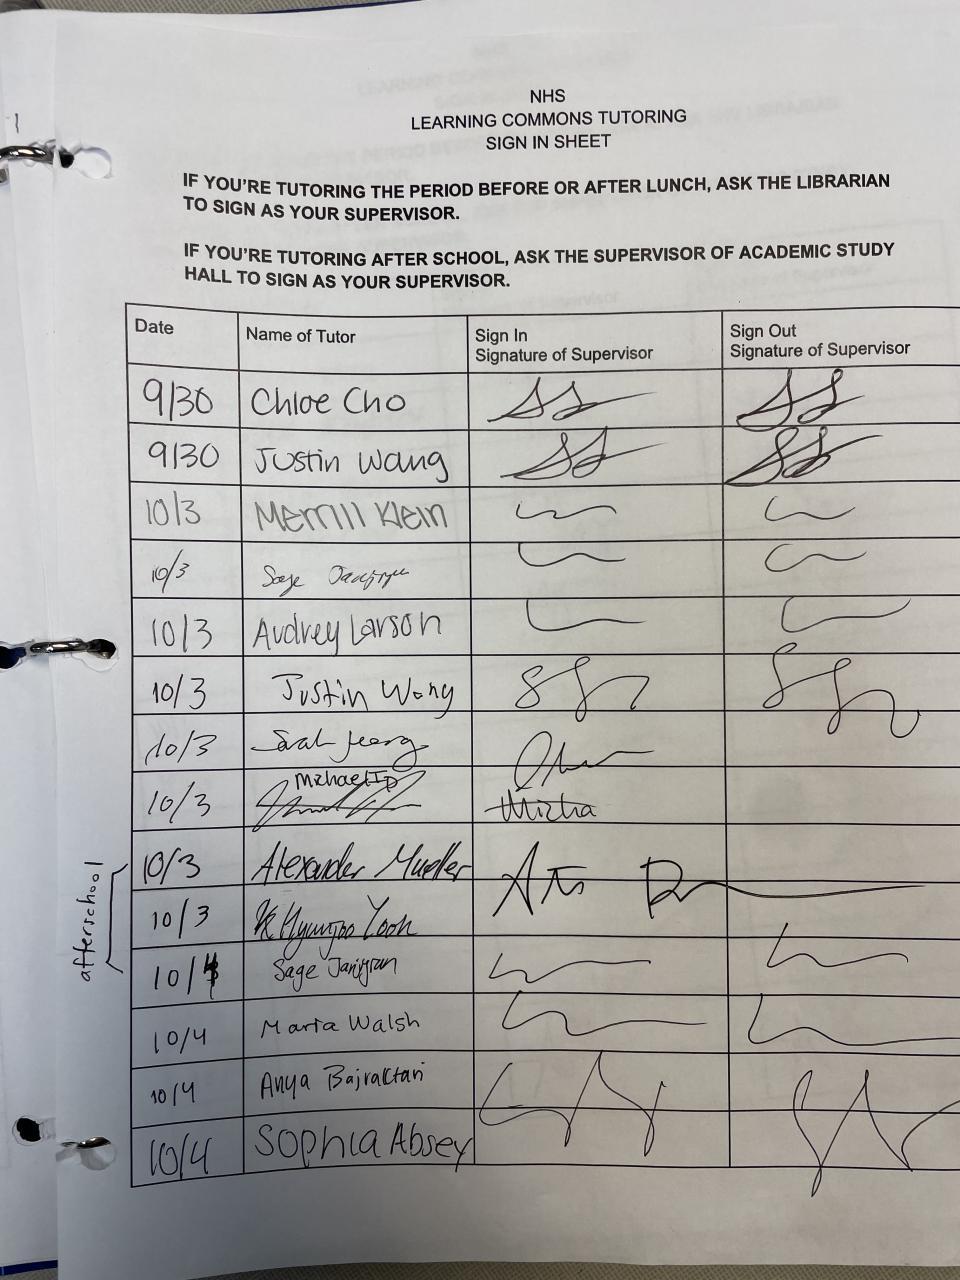 NHS
LEARNING COMMONS TUTORING
SIGN IN SHEET
IF YOU'RE TUTORING THE PERIOD BEFORE OR AFTER LUNCH, ASK THE LIBRARIAN
TO SIGN AS YOUR SUPERVISOR.
IF YOU'RE TUTORING AFTER SCHOOL, ASK THE SUPERVISOR OF ACADEMIC STUDY
HALL TO SIGN AS YOUR SUPERVISOR.
Date Name of Tutor Sign In Sign Out
Signature of Supervisor Signature of Supervisor
9/30 Chloe Cho
9/30 Justin Wang
10/3 Merrill Klein
10/3 Sage
10/3 Audrey Larson
10/3 Justin Wong
10/3 Sarah Jeong
10/3 Michael
10/3 Alexander Mueller
10/3 Hyunjoo Yooh
afterschool
10/4 Sage
10/4 Maria Walsh
10/4 Anya Bajraktari
10/4 Sophia Absey